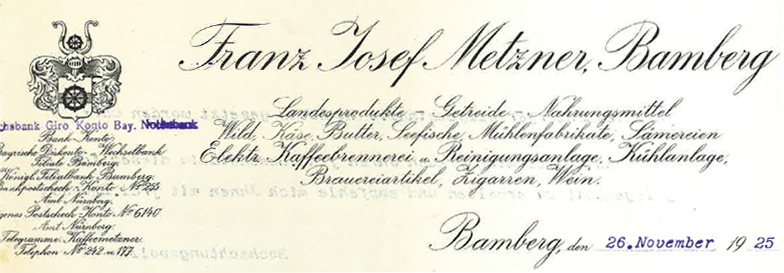 Franz Josef Metzner, Bamberg
Landesprodukte Getreide Nahrungsmittel
Wild, Käse, Butter, Seefische, Mühlenfabrikate, Sämereien
Elektr. Kaffeebrennerei u. Reinigungsanlage, Kühlanlage,
Brauereiartikel, Zigarren, Wein.
chsbank Giro Konto Bay. Notenbank
Bank-Konto:
Bayrische Diskonto- u. Wechselbank
Filiale Bamberg.
Königl. Filialbank Bamberg.
Bankpostscheck-Konto No 255
Amt Nürnberg.
genes Postscheck-Konto No 6140
Amt Nürnberg.
Telegramme: Kaffeemetzner.
Telephon No 242 u. 177.
Bamberg, den 26. November 1925